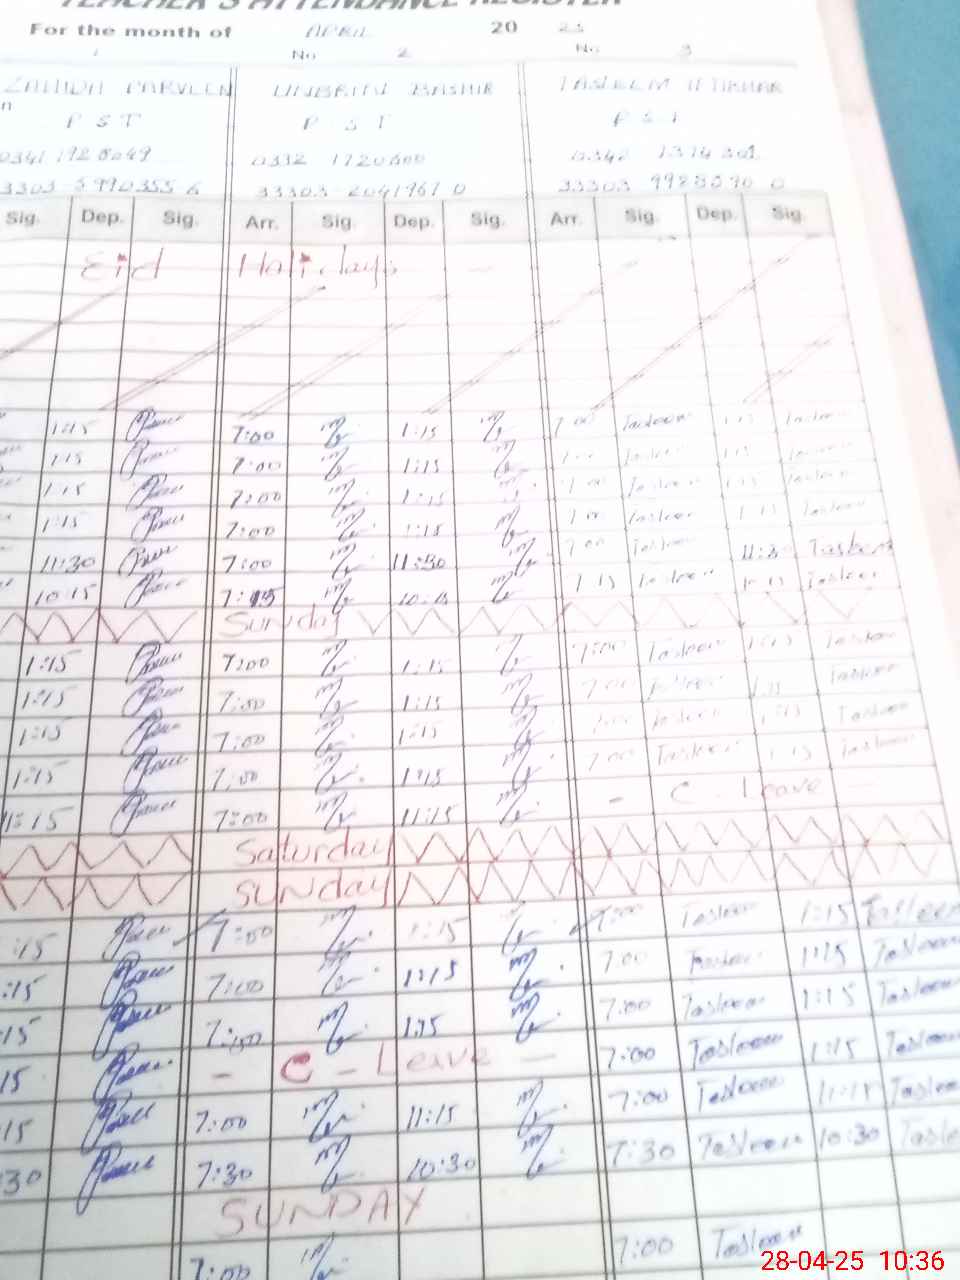 TEACHER'S ATTENDANCE REGISTER
For the month of APRIL 20 25
1 No 2 No 3
ZAHIDA PARVEEN UNBRIN BASHIR TASLEEM IFTIKHAR
P S T P S T P S T
0341 1928049 0332 1720600 0342
33303 5990355 6 33303 2041961 0 33303 0
Sig. Dep. Sig. Arr. Sig. Dep. Sig. Arr. Sig. Dep. Sig.
Eid Holidays
1:15 7:00 1:15 7:00 Tasleem 1:15 Tasleem
1:15 7:00 1:15 7:00 Tasleem 1:15 Tasleem
1:15 7:00 1:15 7:00 Tasleem 1:15 Tasleem
1:15 7:00 1:15 7:00 Tasleem 1:15 Tasleem
11:30 7:00 11:30 7:00 Tasleem 11:30 Tasleem
10:15 7:15 10:15 7:15 Tasleem 10:15 Tasleem
Sunday
1:15 7:00 1:15 7:00 Tasleem 1:15 Tasleem
1:15 7:00 1:15 7:00 Tasleem 1:15 Tasleem
1:15 7:00 1:15 7:00 Tasleem 1:15 Tasleem
1:15 7:00 1:15 7:00 Tasleem 1:15 Tasleem
11:15 7:00 11:15 - C - Leave -
Saturday
SUNday
:15 7:00 1:15 7:00 Tasleem 1:15 Tasleem
:15 7:00 1:15 7:00 Tasleem 1:15 Tasleem
:15 7:00 1:15 7:00 Tasleem 1:15 Tasleem
15 - C - Leave - 7:00 Tasleem 1:15 Tasleem
15 7:00 11:15 7:00 Tasleem 11:15 Tasleem
30 7:30 10:30 7:30 Tasleem 10:30 Tasle
SUNDAY
7:00 7:00 Tasleem
28-04-25 10:36